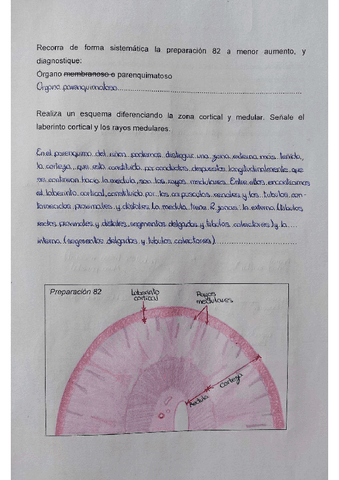 Recorra de forma sistemática la preparación 82 a menor aumento, y
diagnostique:
Órgano membranoso o parenquimatoso
Órgano parenquimatoso
Realiza un esquema diferenciando la zona cortical y medular. Señale el
laberinto cortical y los rayos medulares.
En el parénquima del riñón podemos distinguir una zona externa más teñida,
la corteza, que está constituida por conductos dispuestos longitudinalmente que
se continúan hacia la médula, son los rayos medulares. Entre ellos encontramos
el laberinto cortical, constituido por los corpúsculos renales y los túbulos con-
torneados proximales y distales. La médula tiene 2 zonas: la externa (túbulos
rectos proximales y distales, segmentos delgados y túbulos colectores) y la
interna (segmentos delgados y túbulos colectores)
Preparación 82
Laberinto
cortical
Rayos
medulares
Corteza
Médula